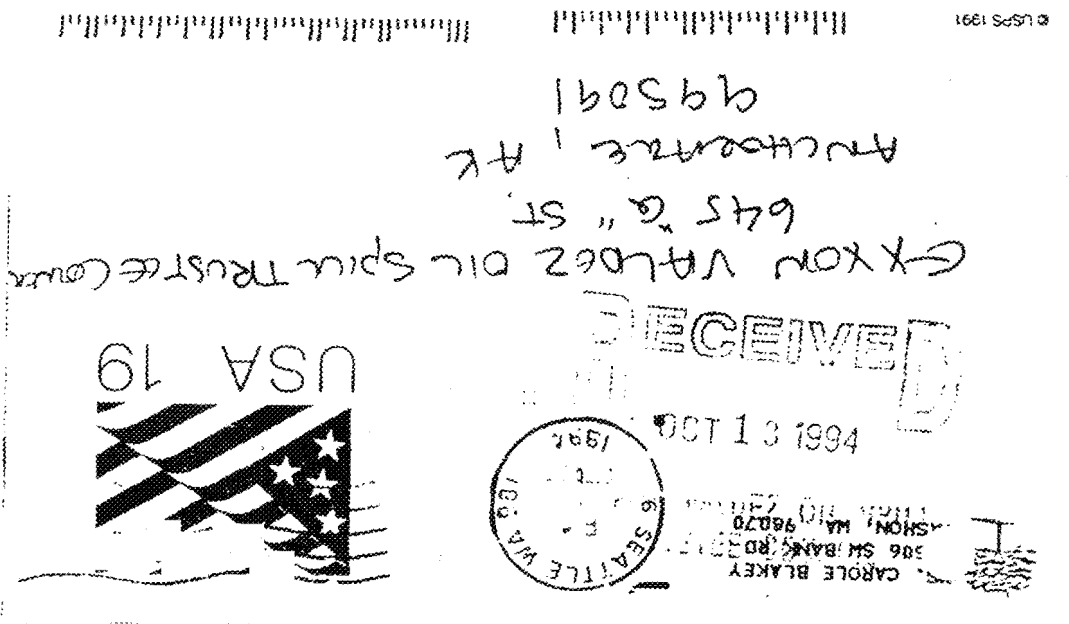 CAROLE BLAKEY
306 SW BANK RD
ASHON, WA 98070
SEATTLE WA 981
1994
USA 19
RECEIVED
OCT 13 1994
EXXON VALDEZ OIL SPILL TRUSTEE COUN
645 "G" ST.
ANCHORAGE, AK
995091
© USPS 1991